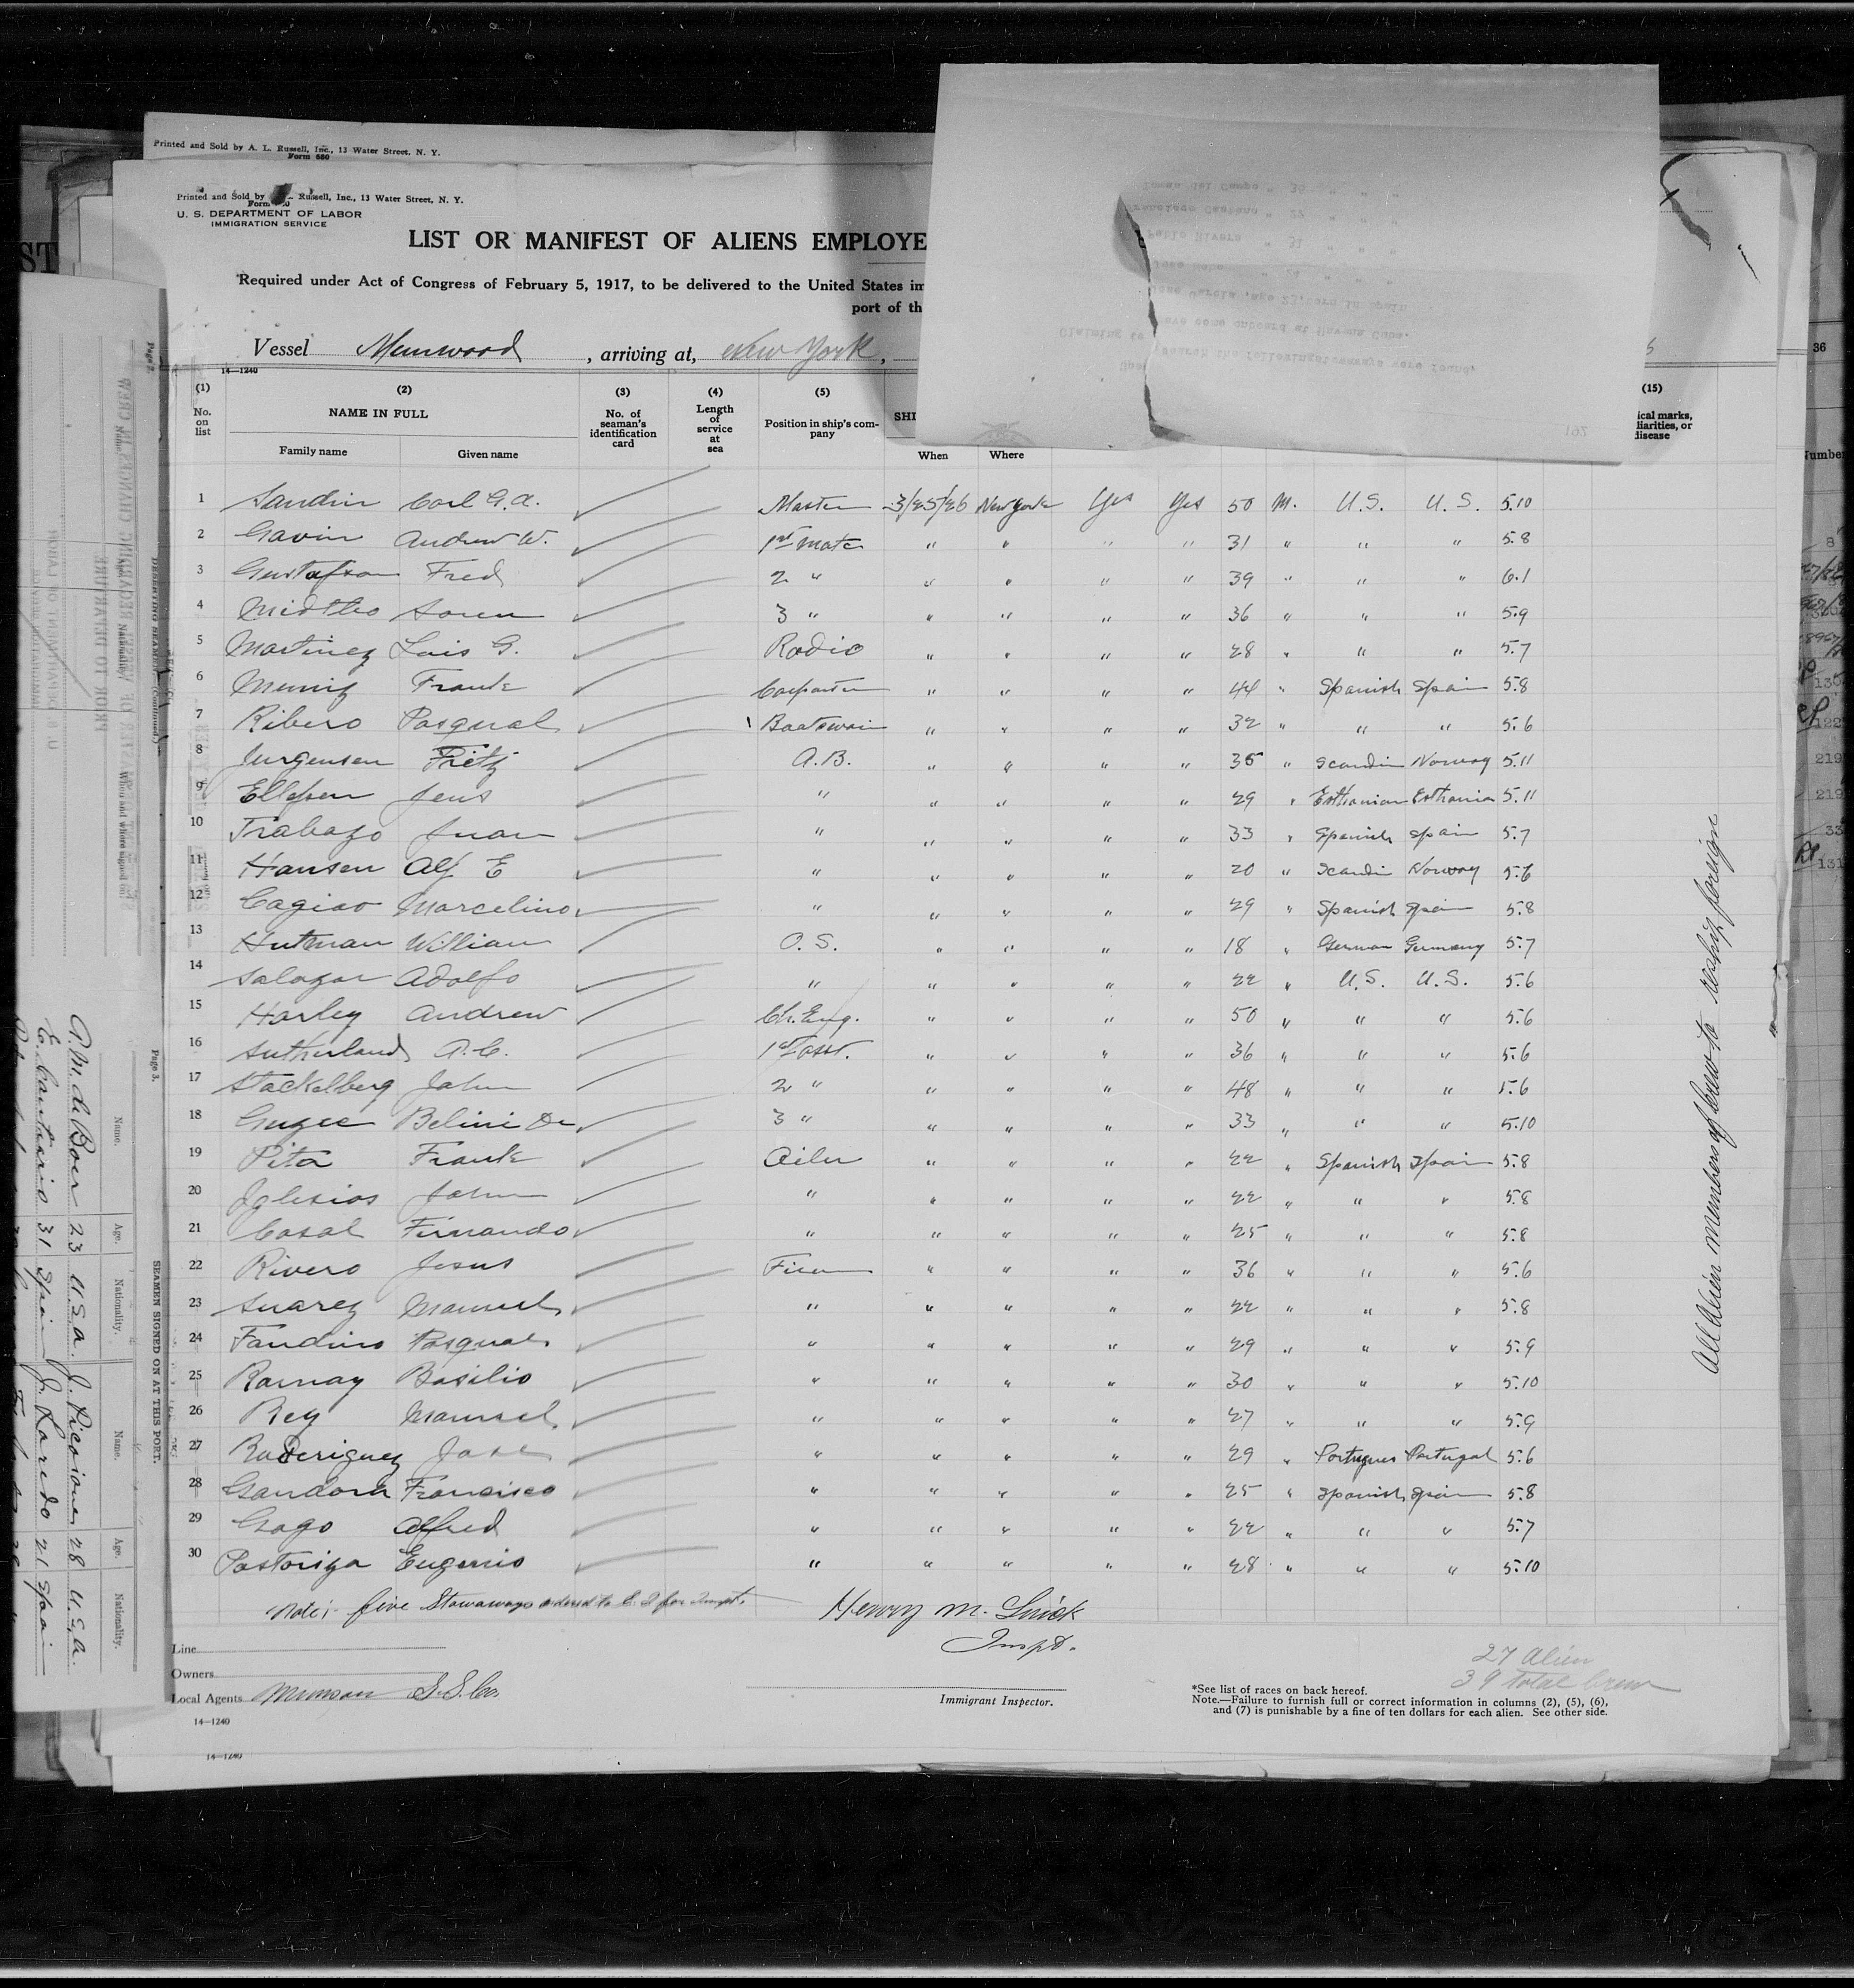 Printed and Sold by A. L. Russell, Inc., 13 Water Street, N. Y.
Form 680
Printed and Sold by Russell, Inc., 13 Water Street, N. Y.
U. S. DEPARTMENT OF LABOR
IMMIGRATION SERVICE
LIST OR MANIFEST OF ALIENS EMPLOYE
Required under Act of Congress of February 5, 1917, to be delivered to the United States im
port of th
Vessel Munwood, arriving at, New York,
14—1240
(1) (2) (3) (4) (5) (15)
No. on list NAME IN FULL No. of seaman's identification card Length of service at sea Position in ship's company SHI ical marks, liarities, or disease
Family name Given name When Where
1 Sandin Carl G.A. Master 3/25/26 New York Yes Yes 50 M. U.S. U.S. 5.10
2 Gavin Andrew W. 1st Mate " " " " 31 " " " 5.8
3 Gustafson Fred 2 " " " " " 39 " " " 6.1
4 Midtbo Soren 3 " " " " " 36 " " " 5.9
5 Martinez Luis G. Radio " " " " 28 " " " 5.7
6 Muniz Frank Carpenter " " " " 44 " Spanish Spain 5.8
7 Ribero Pasqual Boatswain " " " " 32 " " " 5.6
8 Jurgensen Fritz A.B. " " " " 35 " Scandin Norway 5.11
9 Ellefsen Jens " " " " " 29 " Esthonian Esthonia 5.11
10 Trabazo Juan " " " " " 33 " Spanish Spain 5.7
11 Hansen Alf E " " " " " 20 " Scandin Norway 5.6
12 Cagiao Marcelino " " " " " 29 " Spanish Spain 5.8
13 Hutman William O.S. " " " " 18 " German Germany 5.7
14 Salazar Adolfo " " " " " 22 " U.S. U.S. 5.6
15 Harley Andrew Ch. Eng. " " " " 50 " " " 5.6
16 Sutherland A.C. 1st asst. " " " " 36 " " " 5.6
17 Stackelberg John 2 " " " " " 48 " " " 5.6
18 Belini De 3 " " " " " 33 " " " 5.10
19 Pita Frank Oiler " " " " 22 " Spanish Spain 5.8
20 Iglesias John " " " " " 22 " " " 5.8
21 Casal Firnando " " " " " 25 " " " 5.8
22 Rivero Jesus Firem " " " " 36 " " " 5.6
23 Suarez Manuel " " " " " 22 " " " 5.8
24 Fandino Pasqual " " " " " 29 " " " 5.9
25 Ramay Basilio " " " " " 30 " " " 5.10
26 Rey Manuel " " " " " 27 " " " 5.9
27 Roderiguez Jose " " " " " 29 " Portugues Portugal 5.6
28 Gandara Francisco " " " " " 25 " Spanish Spain 5.8
29 Gago Alfred " " " " " 22 " " " 5.7
30 Pastoriza Eugenio " " " " " 28 " " " 5.10
Note: five Stowaways ordered to E. I for Inspt.
Henry M.
Inspt.
All Alien members of Crew to reship foreign
27 Alien
39 total Crew
Line
Owners
Local Agents Munson S.S. Co.
Immigrant Inspector.
*See list of races on back hereof.
Note.—Failure to furnish full or correct information in columns (2), (5), (6),
and (7) is punishable by a fine of ten dollars for each alien. See other side.
14—1240
14—1240
Page 3.
SEAMEN SIGNED ON AT THIS PORT.
Name. Age. Nationality. Name. Age. Nationality.
A. M. de Boer 23 U.S.A. 28 U.S.A.
31 Spain J. Laredo 21 Spain